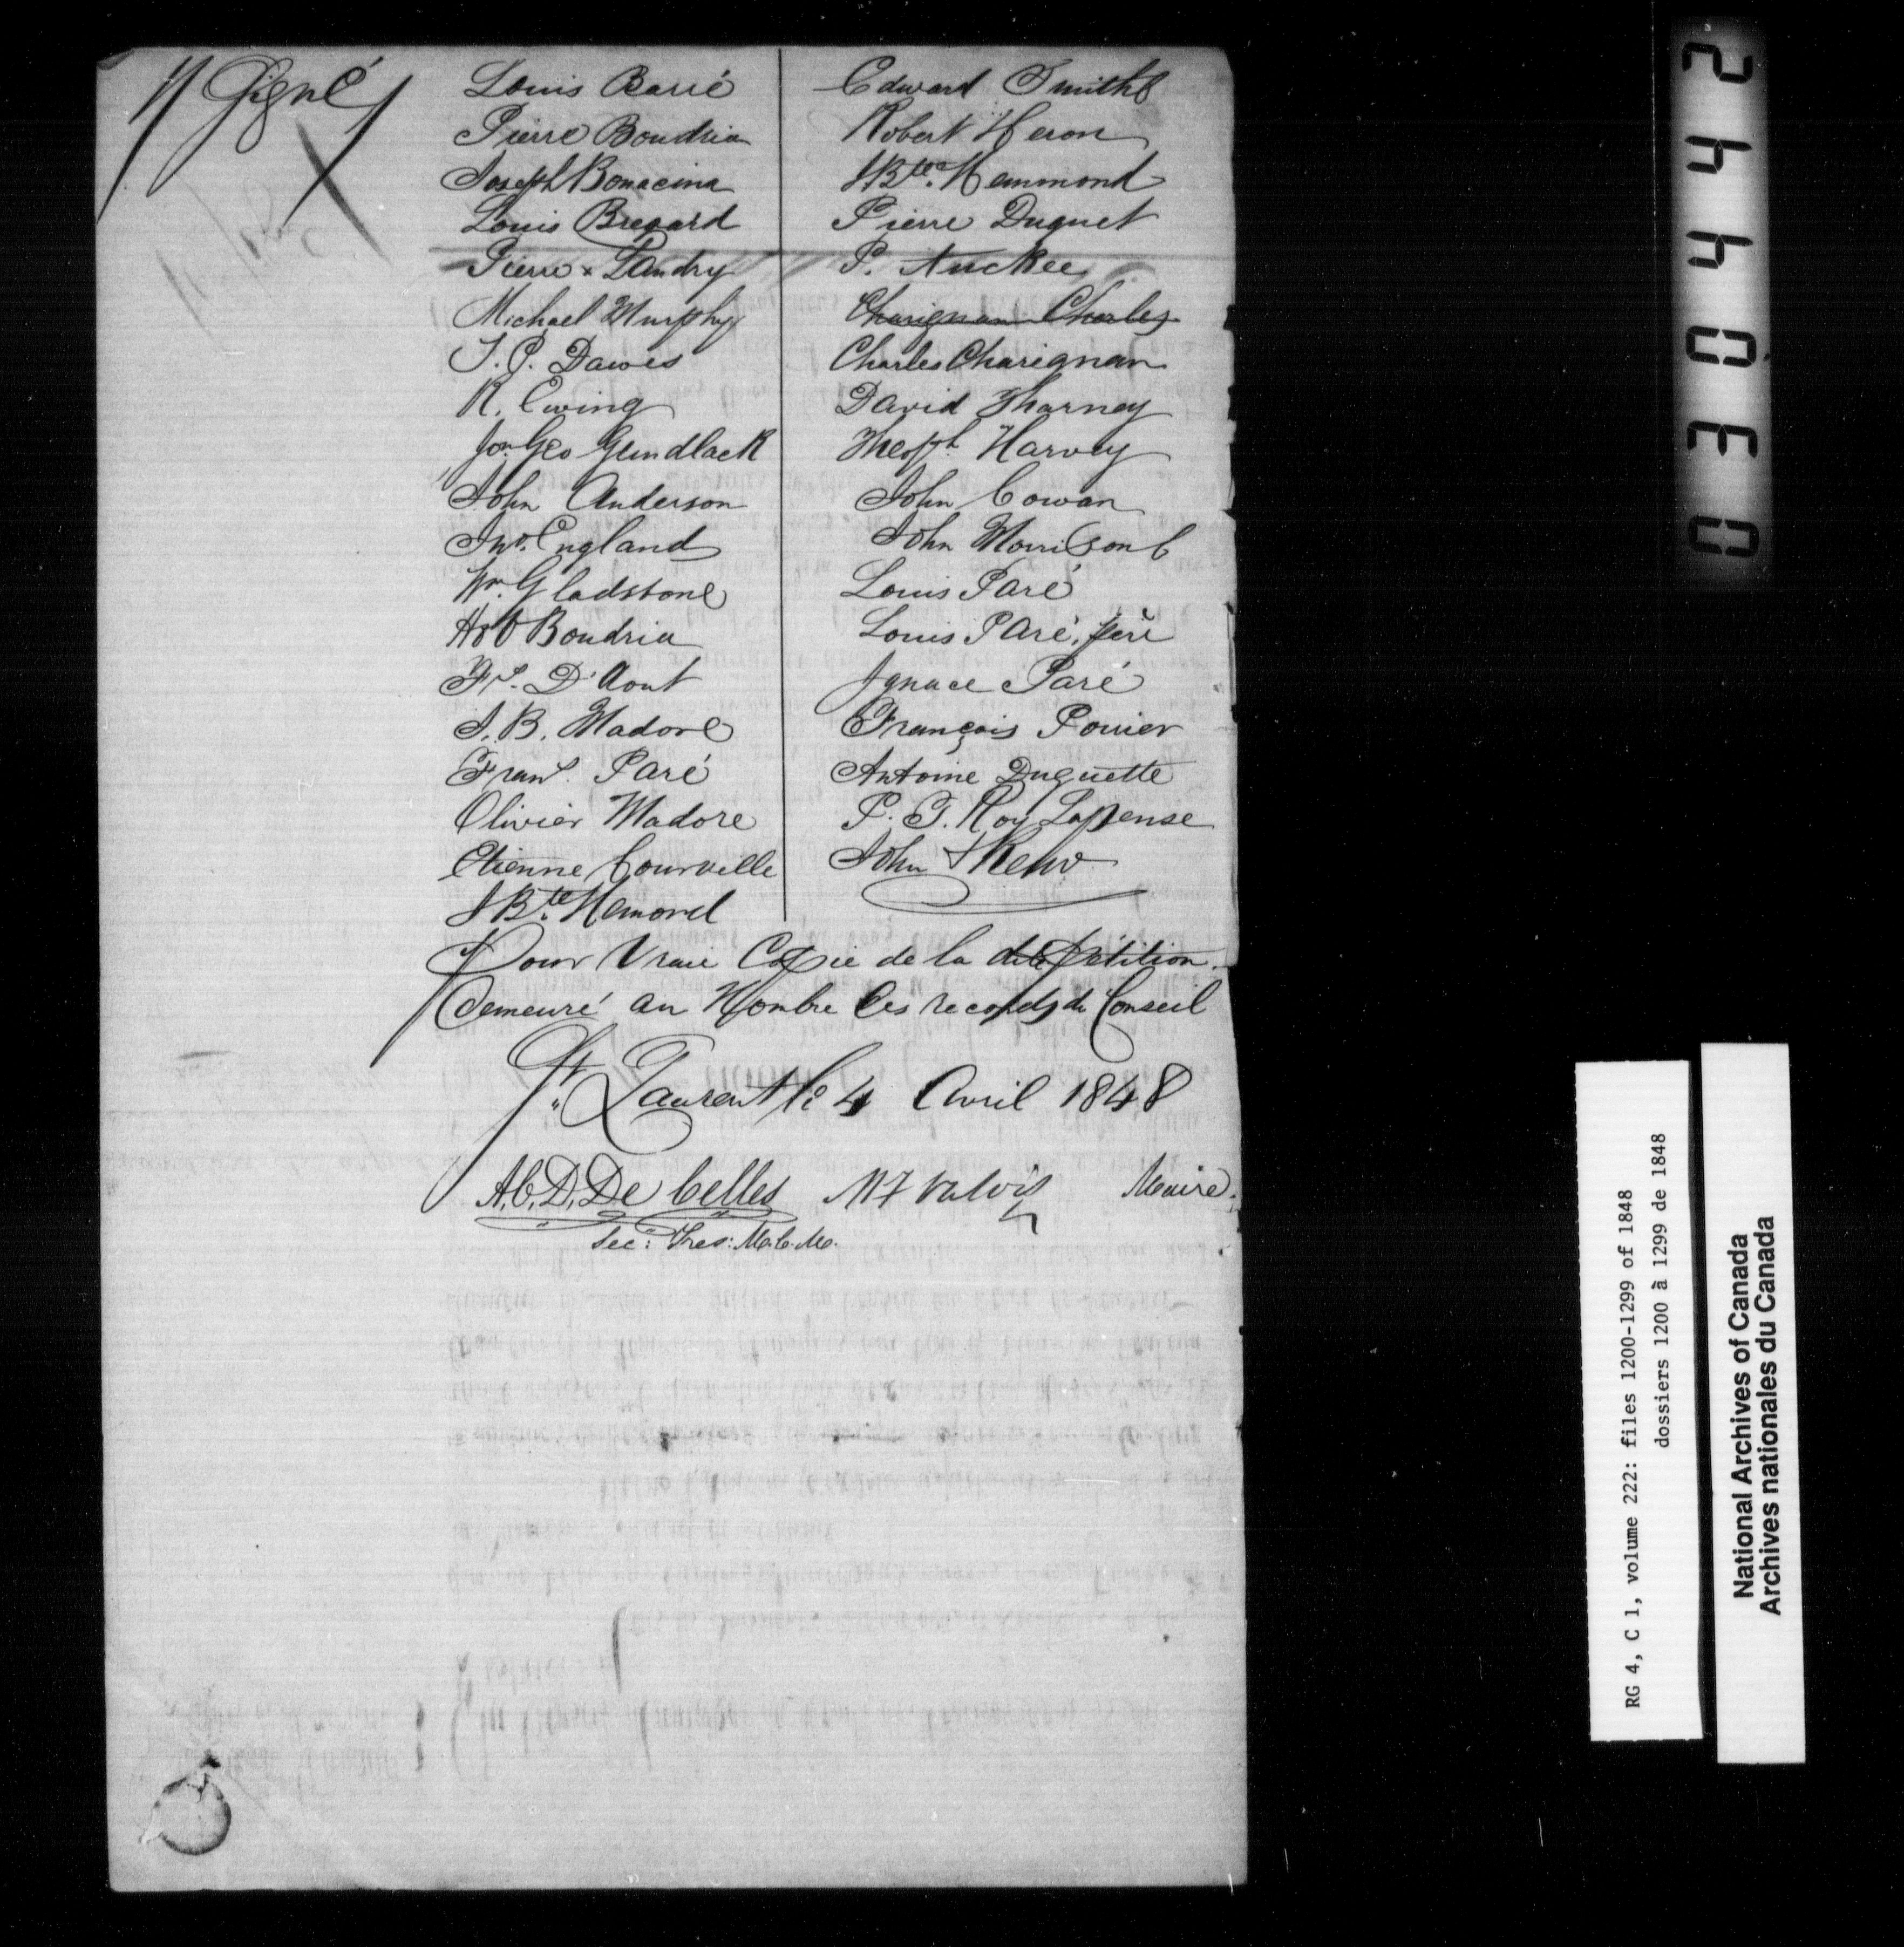 Signé
Louis Barié
Pierre Boudria
Joseph Bonacina
Louis Bregard
Pierre x Landry
Michael Murphy
J. P. Dawes
R. Ewing
Jon Geo Gundlack
John Anderson
Jno. England
Wm. Gladstone
Boudria
Frs. D'Aout
J. B. Madore
Frans. Paré
Olivier Madore
Etienne Courville
J Bte. Hemond
Edward Smith
Robert Heron
J Bte. Hemmond
Pierre Duquet
P. Auckee
Charignan Charles
Charles Charignan
David Tharney
Theoph. Harvey
John Cowan
John Morrison
Louis Paré
Louis Paré, père
Ignace Paré
François Poirier
Antoine Duquette
P. T. Roy Lapense
John Skene
Pour Vraie Copie de la dite Pétition
demeuré au Nombre des records du Conseil
St. Laurent le 4 Avril 1848
A. C. D. De Celles M F Valois Maire.
Sec: Tres: M.C.M.
0 3 0 4 4 2
RG 4, C 1, volume 222: files 1200-1299 of 1848
dossiers 1200 à 1299 de 1848
National Archives of Canada
Archives nationales du Canada